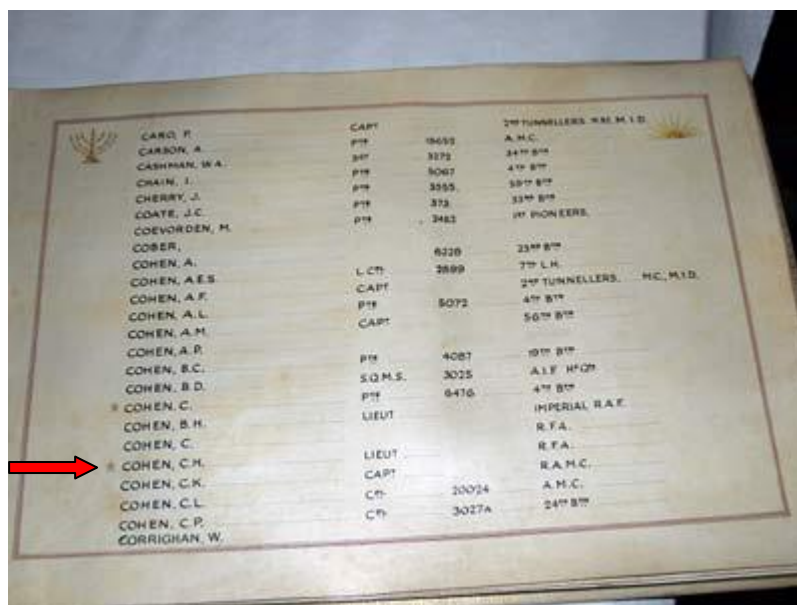 CARO, P. CAPT 2ND TUNNELLERS. M.M. M.I.D.
CARSON, A. PTE 19653 A.M.C.
CASHMAN, W.A. SGT 3272 34TH BTN
CHAIN, I. PTE 5067 4TH BTN
CHERRY, J. PTE 3555. BTN
COATE, J.C. PTE 373. 33RD BTN
COEVORDEN, M. PTE 3483 1ST PIONEERS.
COBER,
COHEN, A. 6228 23RD BTN
COHEN, A.E.S. L.CPL 2899 7TH L.H.
COHEN, A.F. CAPT 2ND TUNNELLERS. M.C., M.I.D.
COHEN, A.L. PTE 5072 4TH BTN
COHEN, A.M. CAPT 56TH BTN
COHEN, A.P.
COHEN, B.C. PTE 4087 19TH BTN
COHEN, B.D. S.Q.M.S. 3025 A.I.F. HDQRS
COHEN, C. PTE 6476 4TH BTN
COHEN, B.H. LIEUT IMPERIAL R.A.F.
COHEN, C. R.F.A.
COHEN, C.H. LIEUT R.F.A.
COHEN, C.K. CAPT R.A.M.C.
COHEN, C.L. CPL 20024 A.M.C.
COHEN, C.P. CPL 3027A 24TH BTN
CORRIGHAN, W.